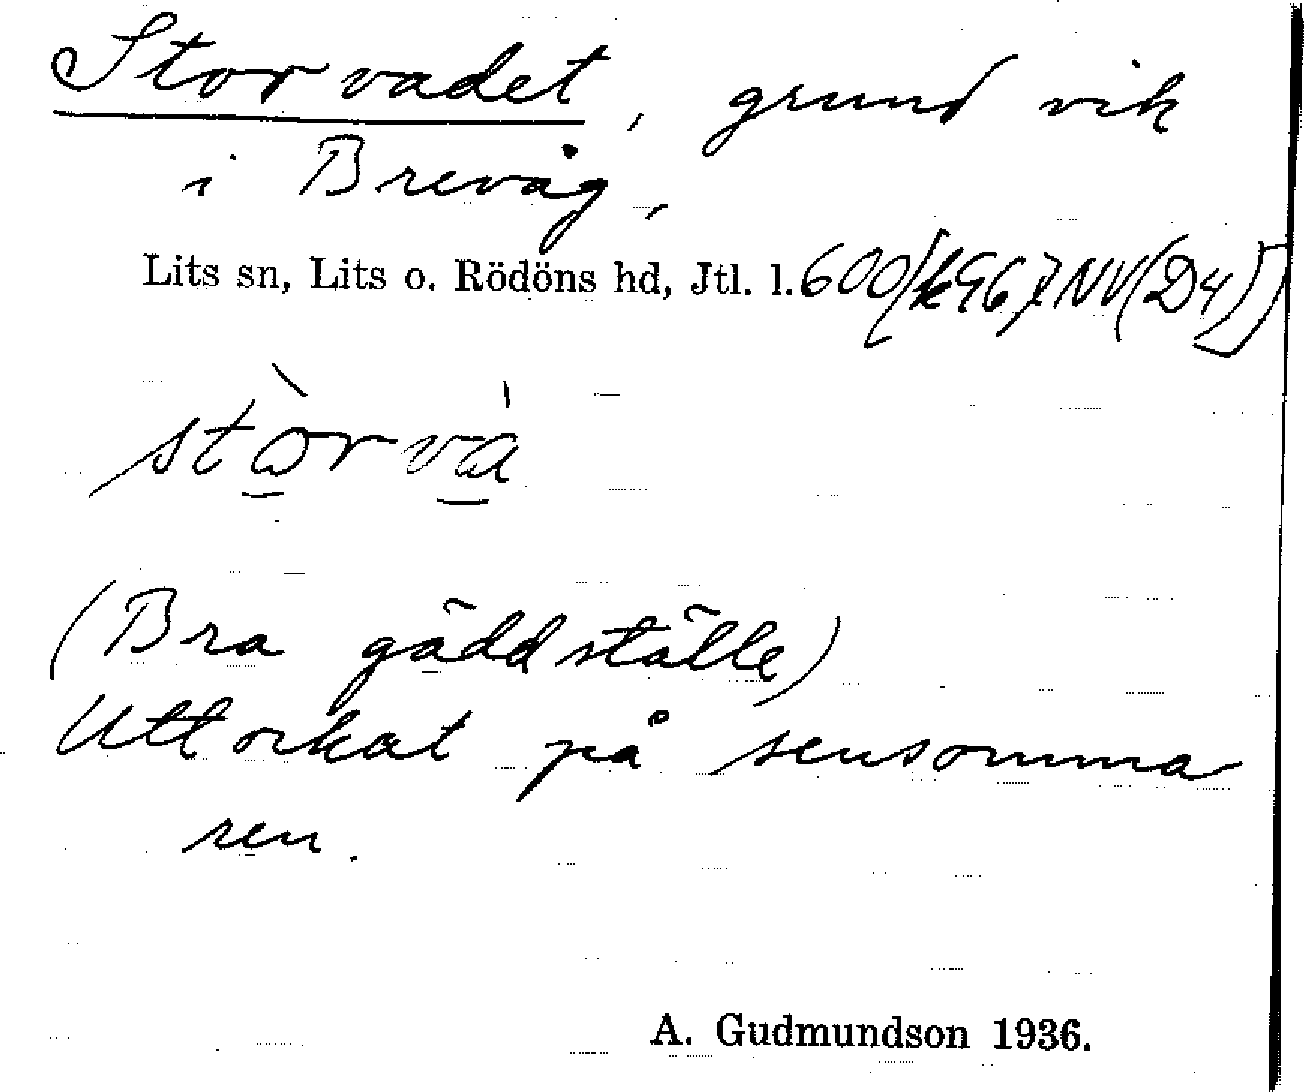 Storvadet, grund vik
i Brevåg,
Lits sn, Lits o. Rödöns hd, Jtl. l. 600/k
stòrvà
(Bra gäddställe)
Uttorkat på sensomma
ren.
A. Gudmundson 1936.